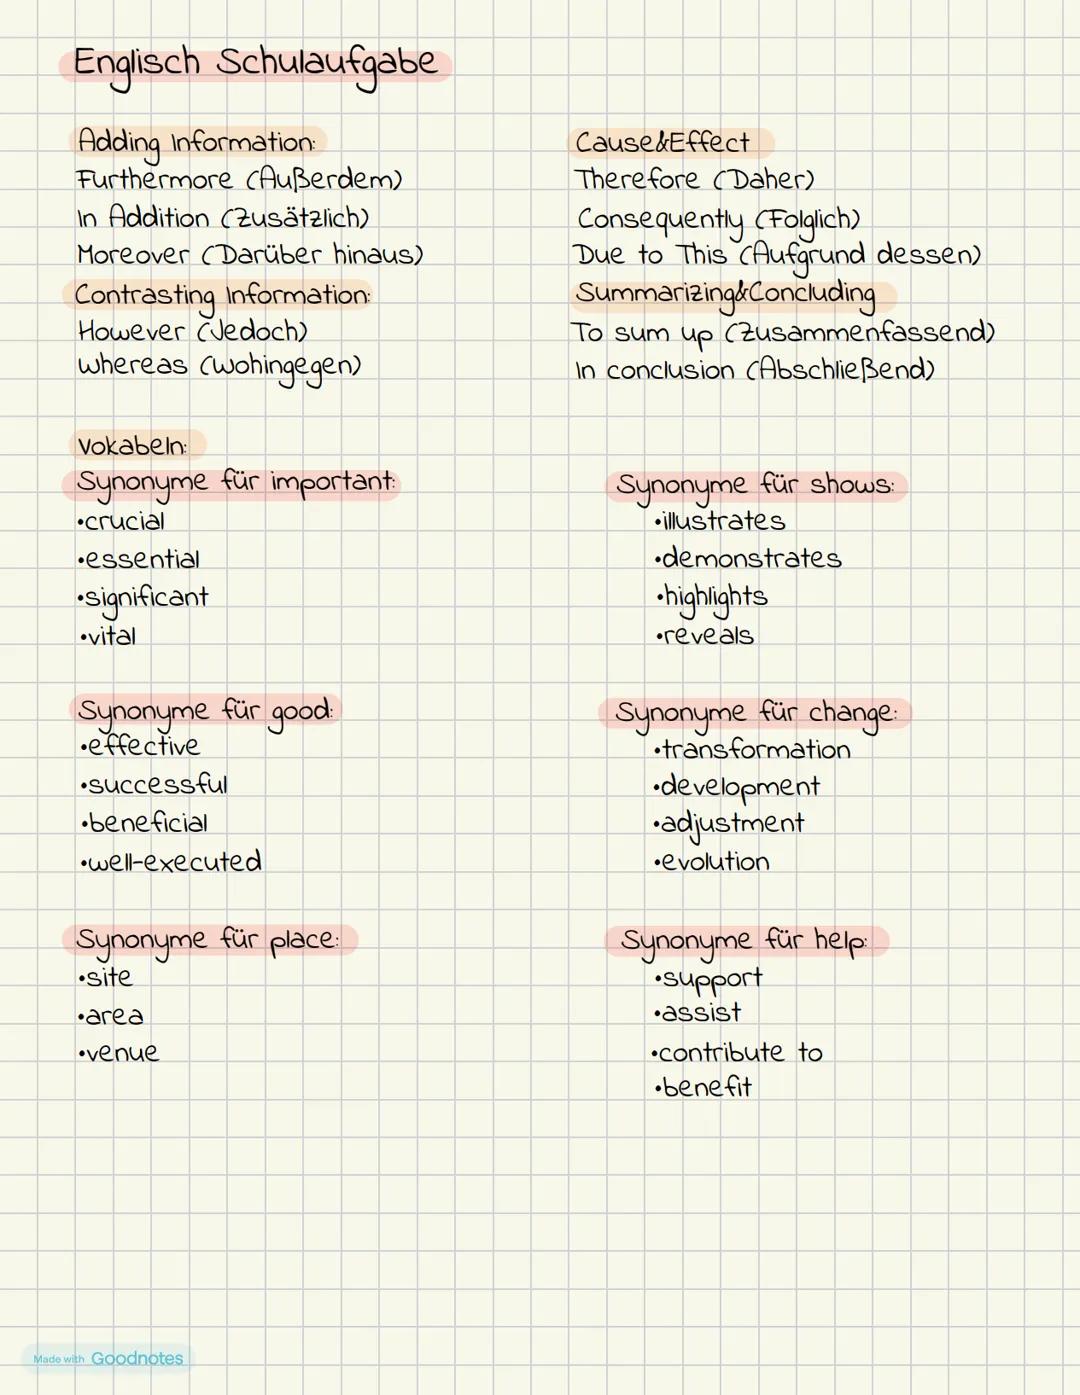 Englisch Schulaufgabe
Adding Information:
Furthermore (Außerdem)
In Addition (Zusätzlich)
Moreover (Darüber hinaus)
Contrasting Information:
However (Jedoch)
Whereas (Wohingegen)
Cause&Effect
Therefore (Daher)
Consequently (Folglich)
Due to This (Aufgrund dessen)
Summarizing&Concluding
To sum up (Zusammenfassend)
In conclusion (Abschließend)
Vokabeln:
Synonyme für important:
•crucial
•essential
•significant
•vital
Synonyme für shows:
•illustrates
•demonstrates
•highlights
•reveals
Synonyme für good:
•effective
•successful
•beneficial
•well-executed
Synonyme für change:
•transformation
•development
•adjustment
•evolution
Synonyme für place:
•site
•area
•venue
Synonyme für help:
•support
•assist
•contribute to
•benefit
Made with Goodnotes